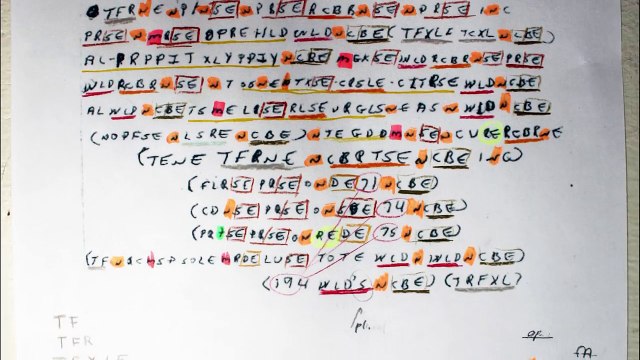 TFRNENPINSENPBSERCBRNSENPRSEINC
PRSENMRSEOPREHLDWLDNCBE(TFXLFTCXLNCBE)
AL-PRPPITXLYPPIYNCBEMGKSEWLDRCBRNSEPRSE
WLDRCBRNSENTSSNENTXSE-CRSLE-CITRSEWLDNCBE
ALWLDNCBETSMELRSERLSEURGLSNEASNWLDNCBE
(NOPFSENLSRENCBE)NTEGDDMNSENCURERCBRNE
(TENETFRNENCBRTSENCBEINC)
(FLRSEPRSEONDE71NCBE)
(CDNSEPRSEONSDE74NCBE)
(PRTSEPRSEONREDE75NCBE)
(TFNSCMSPSOLEMRDELUSETOTEWLDNWLDNCBE)
(194WLD'SNCBE)(TRFXL)
TF
TFR